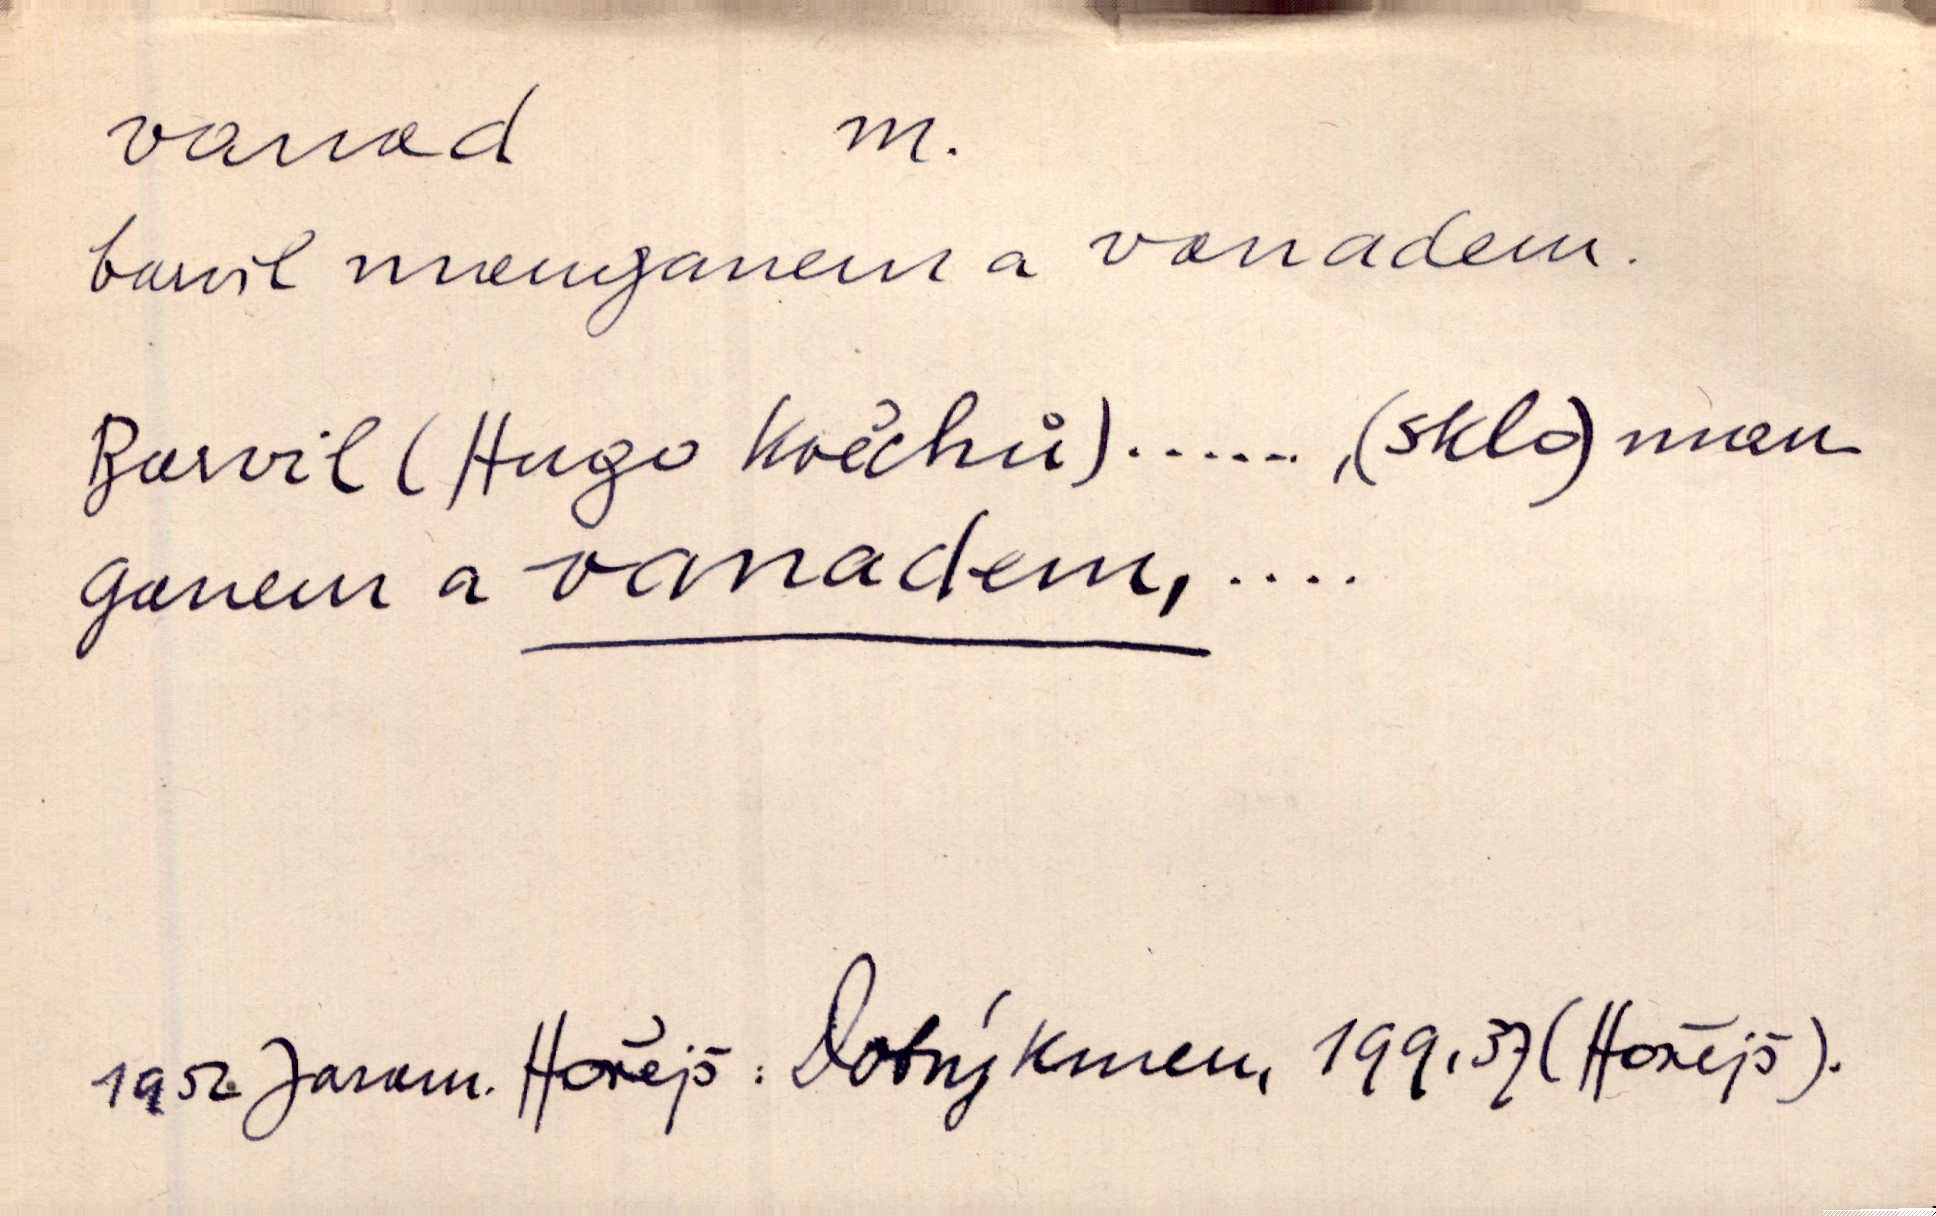 vanad m.
barvil manganem a vanadem.
Barvil (Hugo Kvěchů)......,(sklo) man
ganem a vanadem,....
1952 Jarom. Hořejš: Dobrý kmen, 199,37 (Hořejš).